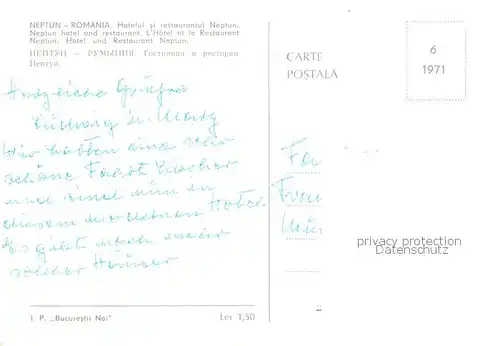 NEPTUN – ROMÂNIA. Hotelul și restaurantul Neptun.
Neptun hotel and restaurant. L'Hôtel et le Restaurant
Neptun. Hotel und Restaurant Neptun.
НЕПТУН – РУМЫНИЯ. Гостиница и ресторан
Нептун.
CARTE
POȘTALĂ
6
1971
Herzliche Grüße
Ludwig u.
Wir hatten eine sehr
schöne Fahrt hierher
und sind nun in
diesem modernen Hotel
Es gibt noch mehr
solcher Häuser
Fa
Frau
privacy protection
Datenschutz
I. P. „Bucureștii Noi"
Lei 1,50